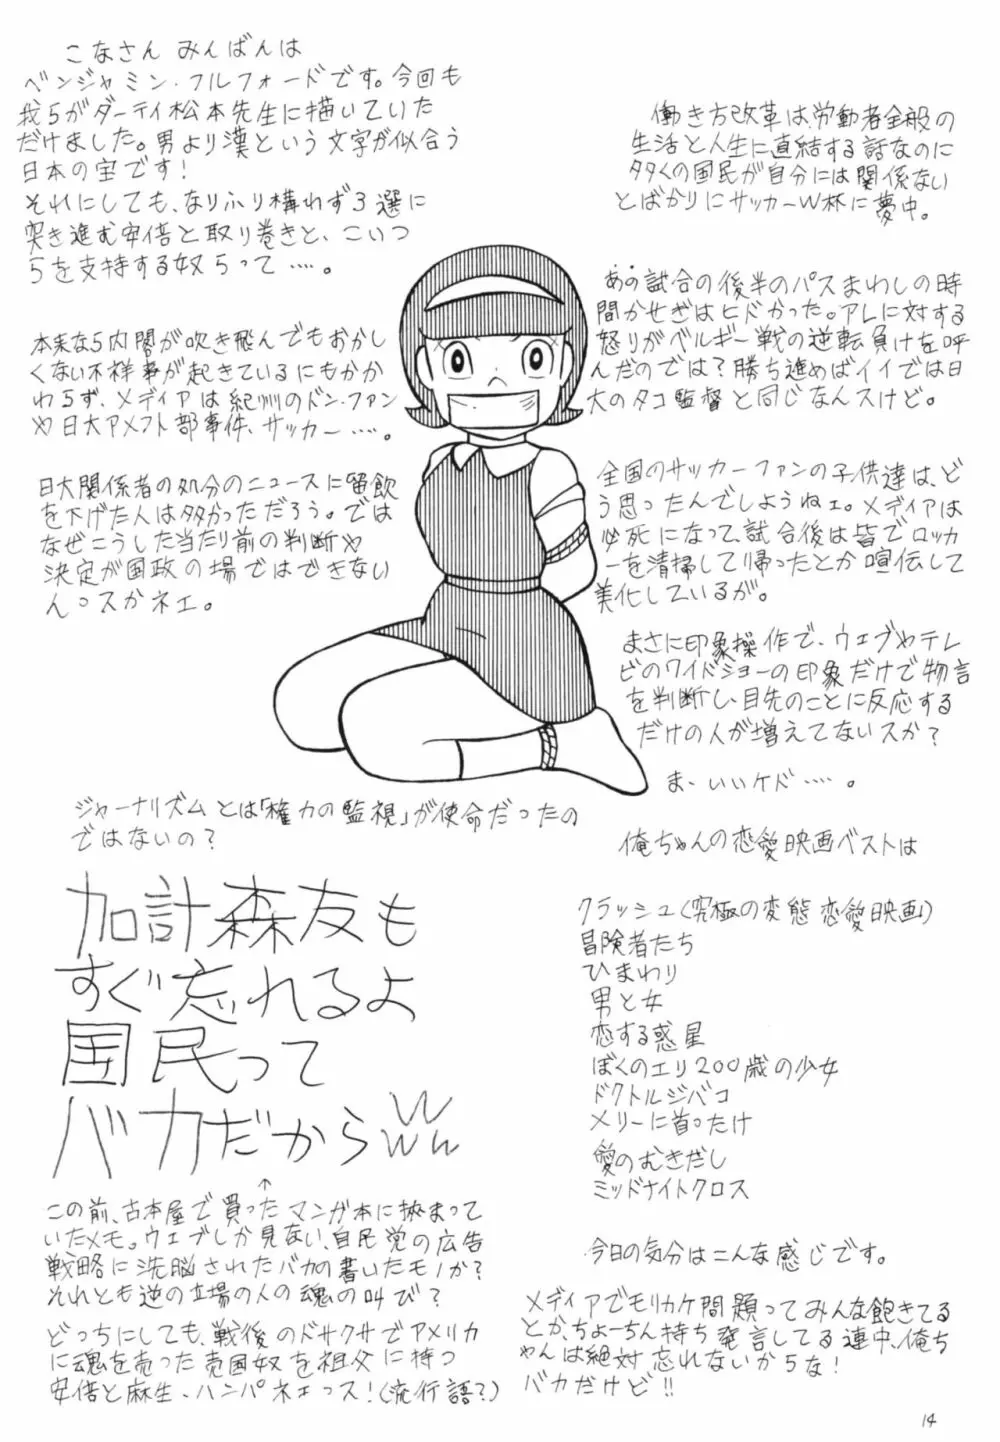 こなさん みんばんは
ベンジャミン・フルフォードです。今回も
我らがダーティ松本先生に描いていた
だけました。男より漢という文字が似合う
日本の宝です！
それにしても、なりふり構わず3選に
突き進む安倍と取り巻きと、こいつ
らを支持する奴らって‥‥。
本来なら内閣が吹き飛んでもおかし
くない不祥事が起きているにもかか
わらず、メディアは紀州のドン・ファン
や日大アメフト部事件、サッカー‥‥。
日大関係者の処分のニュースに留飲
を下げた人は多かっただろう。では
なぜこうした当たり前の判断や
決定が国政の場ではできない
んっスかネエ。
ジャーナリズムとは「権力の監視」が使命だったの
ではないの？
加計森友も
すぐ忘れるよ
国民って
バカだからWWWW
↑
この前、古本屋で買ったマンガ本に挟まって
いたメモ。ウェブしか見ない、自民党の広告
戦略に洗脳されたバカの書いたモノか？
それとも逆の立場の人の魂の叫び？
どっちにしても、戦後のドサクサでアメリカ
に魂を売った売国奴を祖父に持つ
安倍と麻生、ハンパネェっス！（流行語？）
働き方改革は、労働者全般の
生活と人生に直結する話なのに
多くの国民が自分には関係ない
とばかりにサッカーW杯に夢中。
あの試合の後半のパスまわしの時
間かせぎはヒドかった。アレに対する
怒りがベルギー戦の逆転負けを呼
んだのでは？勝ち進めばイイでは日
大のタコ監督と同じなんスけど。
全国のサッカーファンの子供達は、ど
う思ったんでしようねェ。メディアは
必死になって、試合後は皆でロッカ
ーを清掃して帰ったとか喧伝して
美化しているが。
まさに印象操作で、ウェブやテレ
ビのワイドショーの印象だけで物言
を判断し、目先のことに反応する
だけの人が増えてないスか？
ま、いいケド‥‥。
俺ちゃんの恋愛映画ベストは
クラッシュ（究極の変態恋愛映画）
冒険者たち
ひまわり
男と女
恋する惑星
ぼくのエリ200歳の少女
ドクトルジバコ
メリーに首ったけ
愛のむきだし
ミッドナイトクロス
今日の気分はこんな感じです。
メディアでモリカケ問題ってみんな飽きてる
とか、ちょーちん持ち発言してる連中、俺ち
ゃんは絶対忘れないからな！
バカだけど!!
14